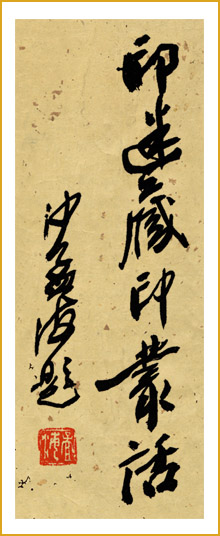 印迷藏印叢話
沙孟海題